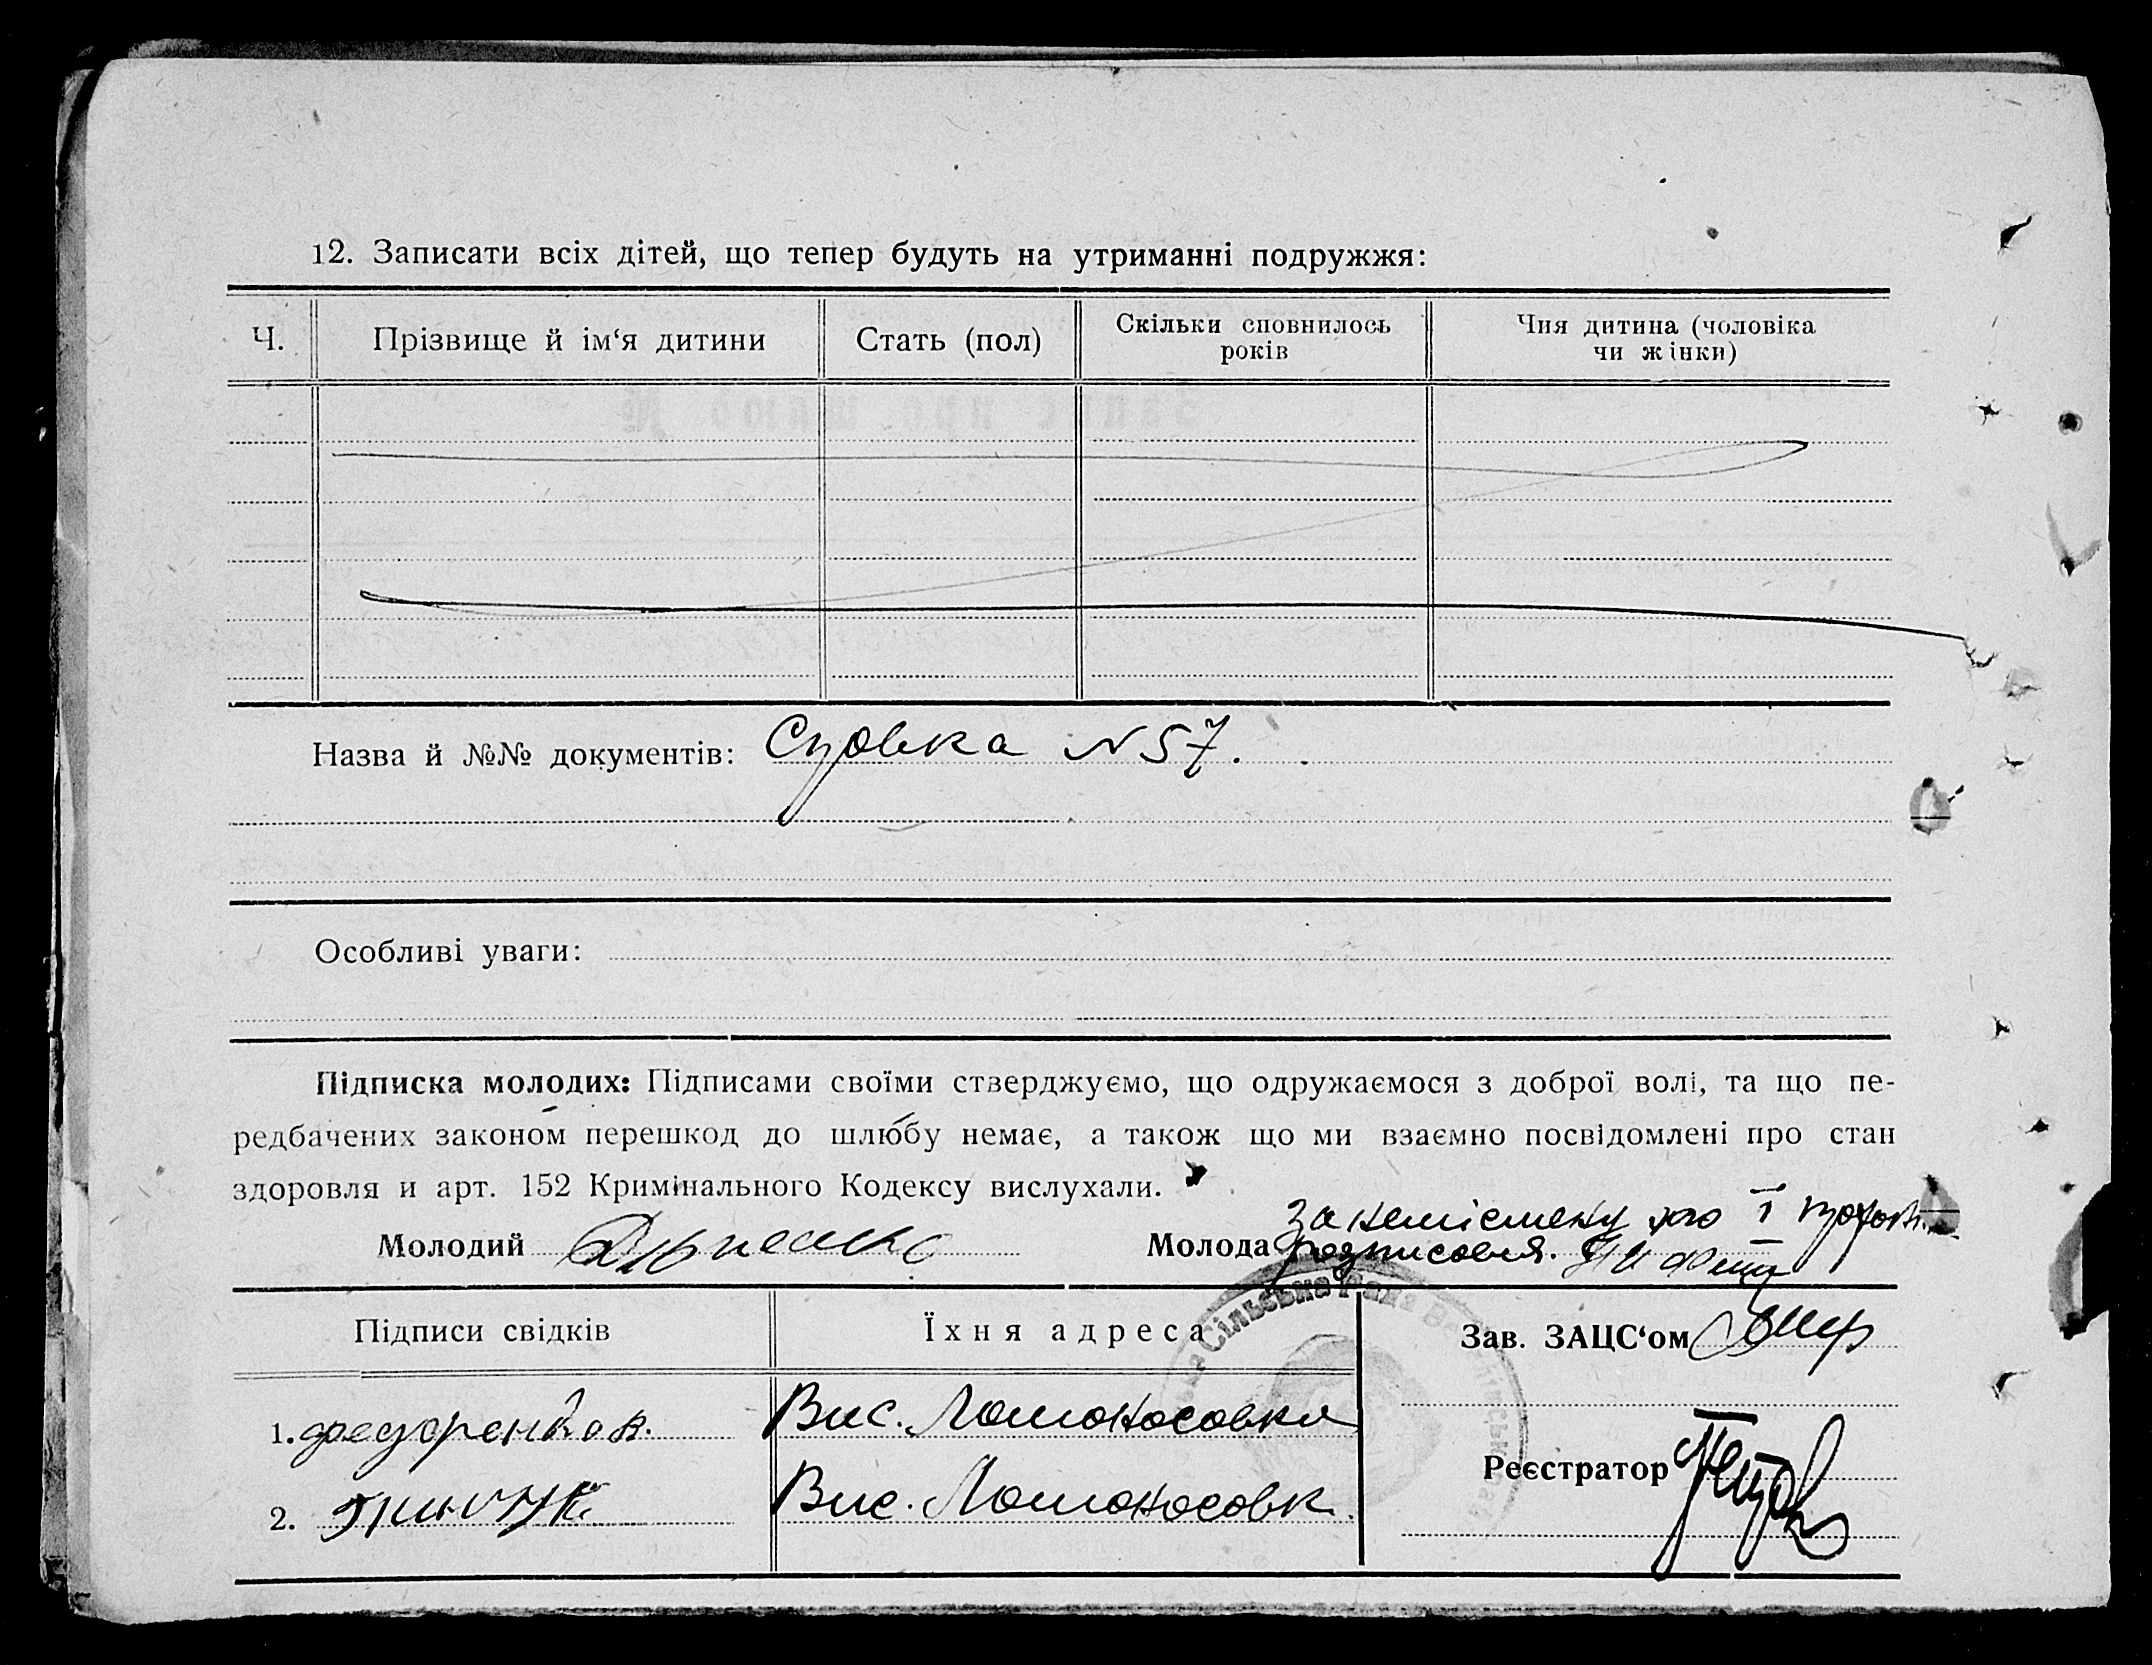 12. Записати всіх дітей, що тепер будуть на утриманні подружжя:
Ч.
Прізвище й ім‘я дитини
Стать (пол)
Скільки сповнилось
років
Чия дитина (чоловіка
чи жінки)
Назва й №№ документів: N 57.
Особливі уваги:
Підписка молодих: Підписами своїми стверджуємо, що одружаємося з доброї волі, та що пе-
редбачених законом перешкод до шлюбу немає, а також що ми взаємно посвідомлені про стан
здоровля и арт. 152 Кримінального Кодексу вислухали.
Молодий
За неписмену
Молода
Сільська Рада
Підписи свідків
Їхня адреса
Зав. ЗАЦС‘ом
1. Федоренко к.
Вис. Ломоносовка
Реєстратор
2. Гринчук
Вис. Ломоносовк